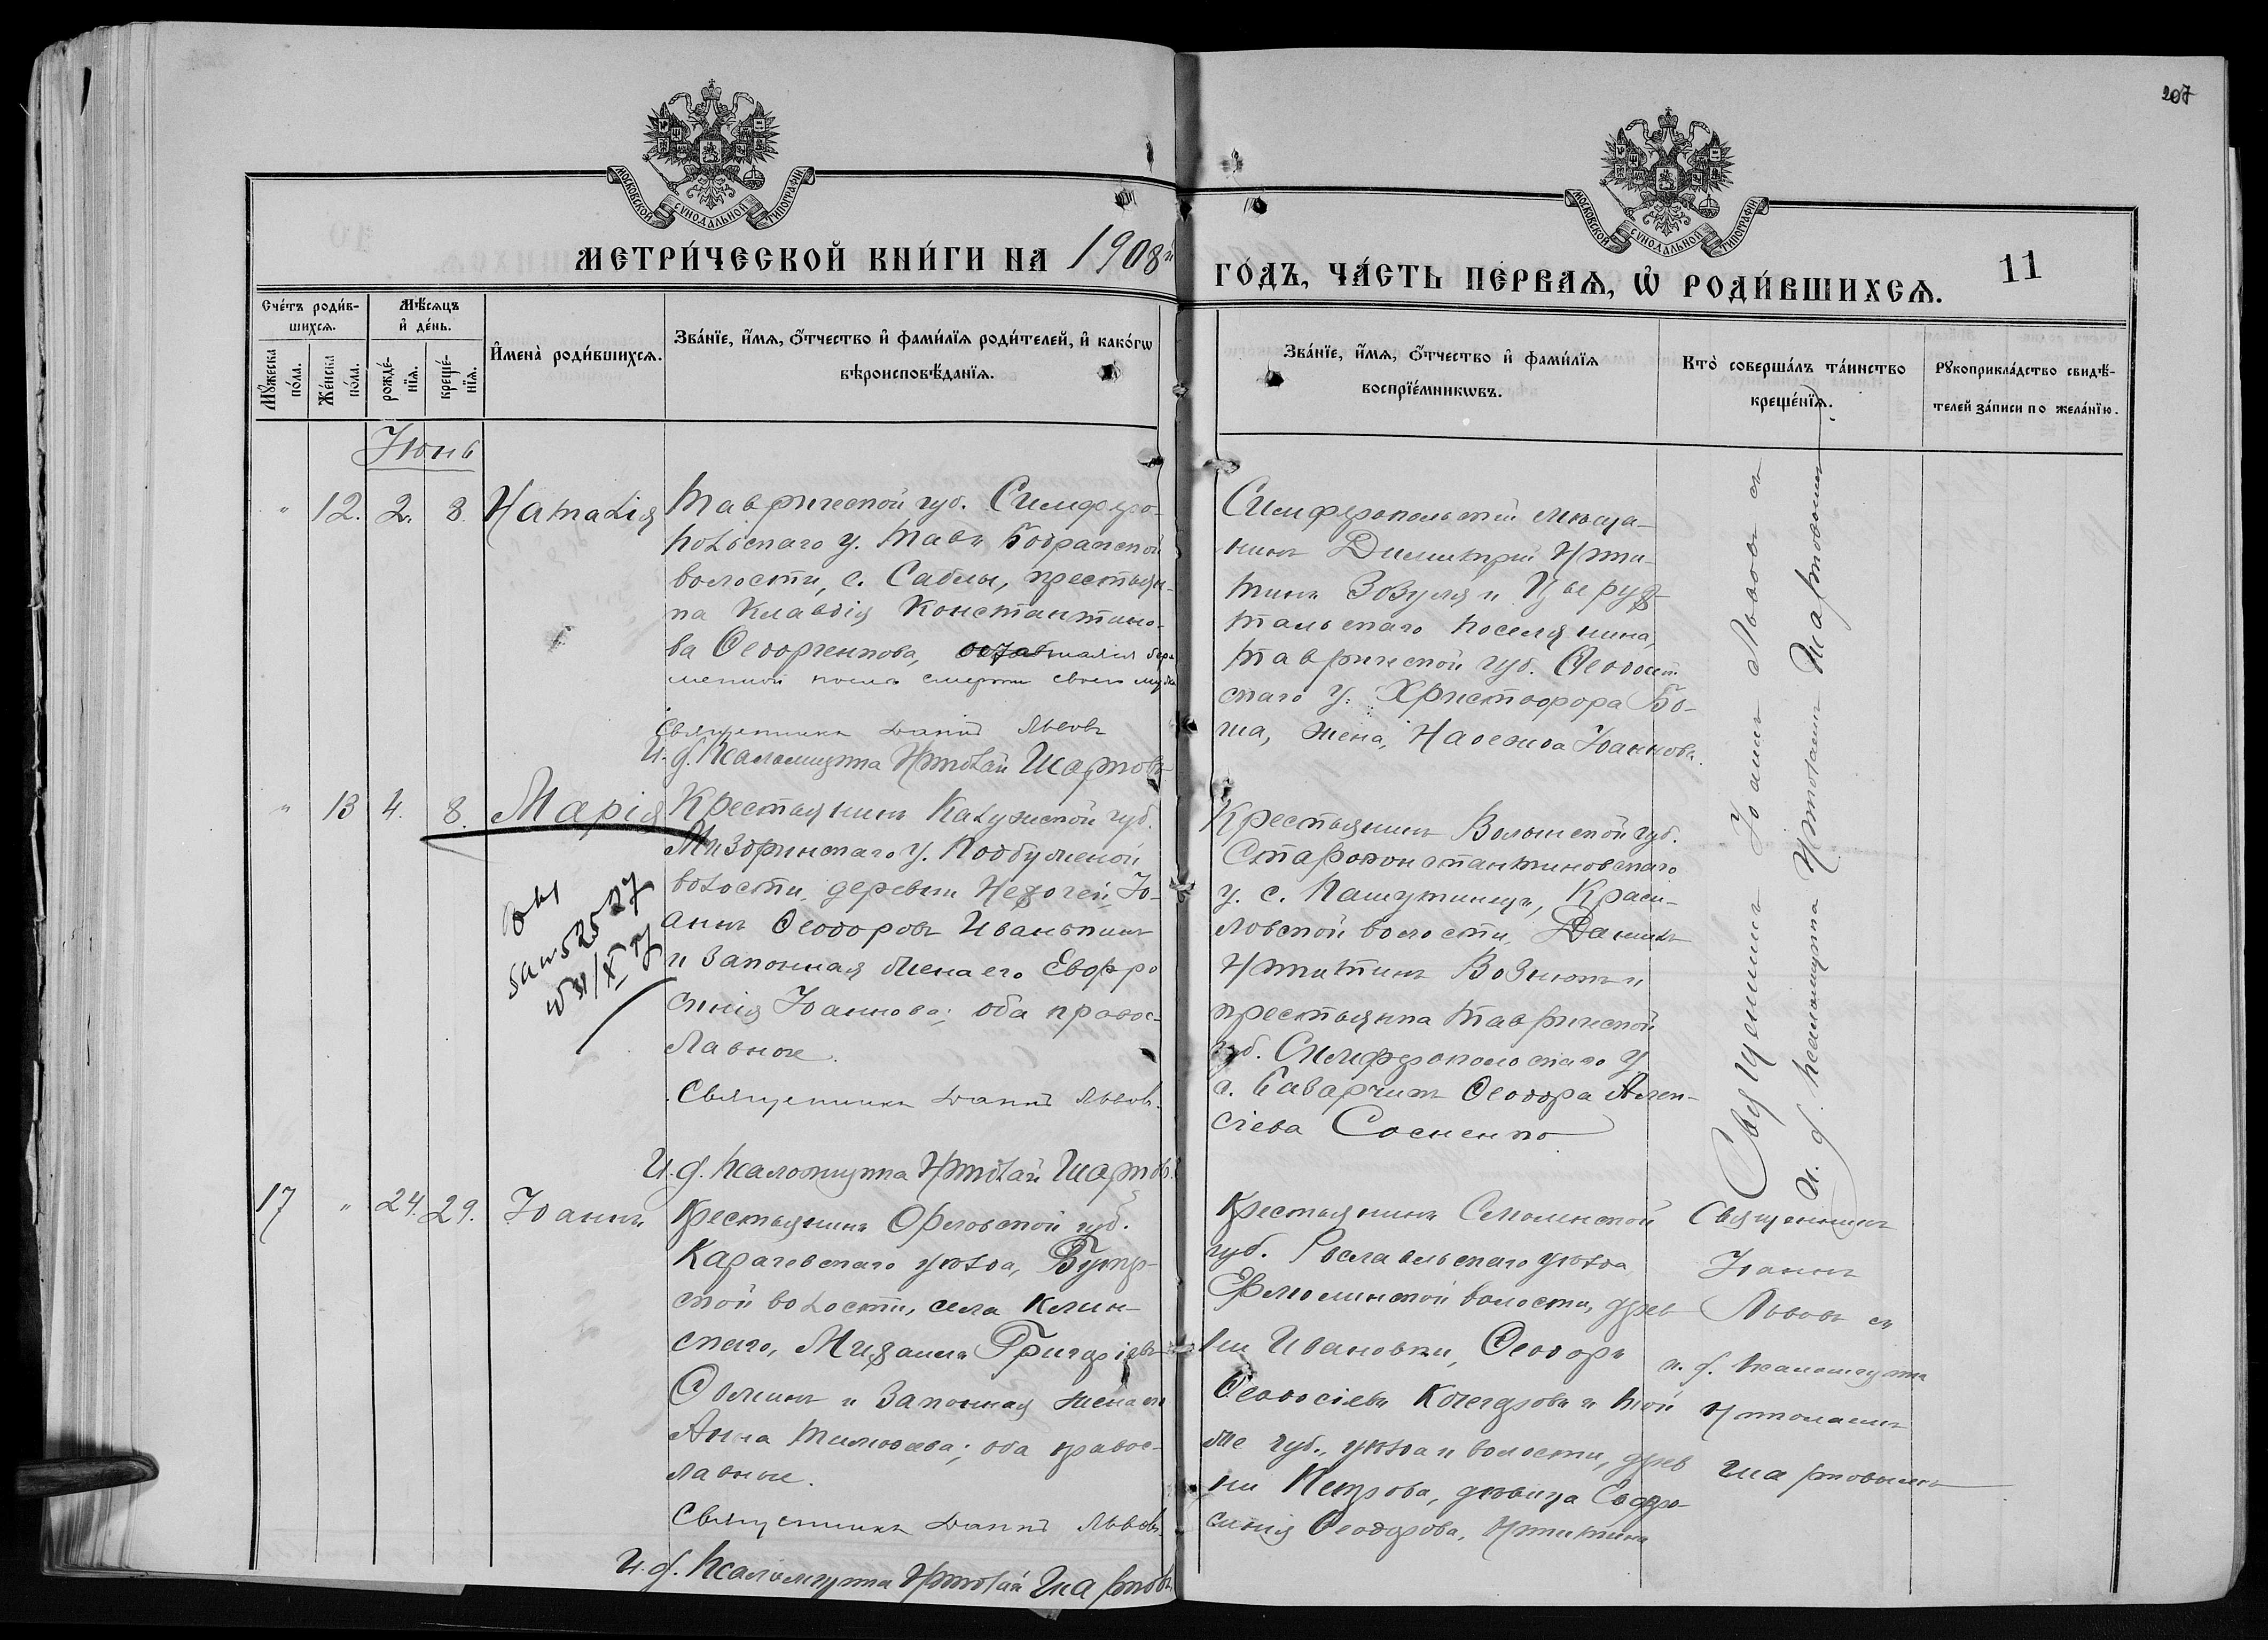 207
МОСКОВСКОЙ СѴНОДАЛЬНОЙ ТИПОГРАФІИ
МОСКОВСКОЙ СѴНОДАЛЬНОЙ ТИПОГРАФІИ
МЕТРИ́ЧЕСКОЙ КНИ́ГИ НА 1908й
ГО́ДЪ, ЧА́СТЬ ПЕ́РВАѦ, Ѡ҆ РОДИ́ВШИХСѦ.
11
Сче́тъ роди́в-
шихсѧ.
Мꙋ́жеска по́ла.
Же́нска по́ла.
Мѣ́сѧцъ
и҆ де́нь.
рожде́-
нїѧ.
креще́-
нїѧ.
И҆мена̀ роди́вшихсѧ.
Зва́нїе, и҆́мѧ, ѻ҆́тчество и҆ фами́лїѧ роди́телей, и҆ како́гѡ
вѣроисповѣ́данїѧ.
Зва́нїе, и҆́мѧ, ѻ҆́тчество и҆ фами́лїѧ
воспрїе́мникѡвъ.
Кто̀ соверша́лъ та́инство
креще́нїѧ.
Рꙋкоприкла́дство свидѣ́-
телей за́писи по жела́нїю.
Іюнь
" 12. 2. 8. Наталія
Таврической губ. Симферо-
польскаго у.
волости, с. Саблы, крестьян-
ка Клавдія Константино-
ва Ѳедорченкова, оставшаяся бере
менной послѣ смерти своего мужа
Священникъ Іоаннъ Львовъ
И. д. псаломщика Шартовъ
Симферопольскій мѣща-
нинъ Димитрій Ники-
тинъ Зозуля и Цыруг-
тальскаго поселянина,
Таврической губ. Ѳеодосій
скаго у. Христофора Бо-
ша, жена, Надежда Іоаннова.
Священникъ Іоаннъ Львовъ съ
и. д. псаломщика Шартовымъ
" 13 4. 8. Марія
Крестьянинъ Калужской губ.
Миздринскаго у. Подбужской
волости, деревни Іо-
аннъ Ѳеодоровъ Иванькинъ
и законная жена его Евфро
синія Іоаннова; оба правос-
лавные.
Священникъ Іоаннъ Львовъ.
И. д. псаломщика Шартовъ.
Крестьянинъ Волынской губ.
Староконстантиновскаго
у. с. Пашутинцы, Краси-
ловской волости, Даніилъ
Никитинъ Вознюкъ и
крестьянка Таврической
губ. Симферопольскаго у
с. Саварчикъ Ѳеодора Алек-
сіева Сосненко
17 " 24. 29. Іоаннъ
Крестьянинъ Орловской губ.
Карачевскаго уѣзда, Бутр-
ской волости, села Клин-
скаго, Михаилъ Григоріевъ
и законная жена его
Анна Тимоѳеева; оба правос-
лавные.
Священникъ Іоаннъ Львовъ.
И. д. псаломщика Шартовъ
Крестьянинъ Смоленской
губ. Рославльскаго уѣзда
Ермолинской волости, дерев
ни Ивановки, Ѳеодоръ
Ѳеодосіевъ и той
же губ., уѣзда и волости, дерев
ни Петрова, дѣвица Евфро-
синія Ѳеодорова, Никитина
Священникъ
Іоаннъ
Львовъ съ
и. д. псаломщика
Шартовымъ